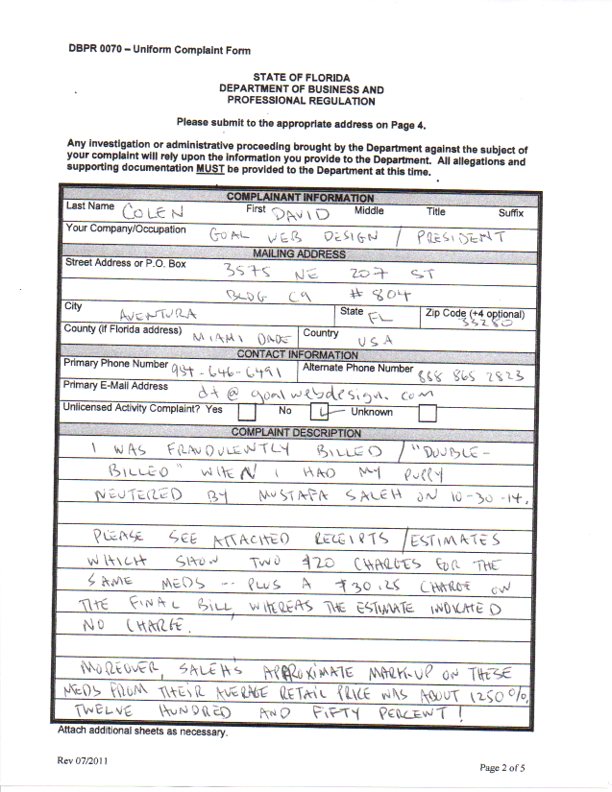 DBPR 0070 – Uniform Complaint Form
STATE OF FLORIDA
DEPARTMENT OF BUSINESS AND
PROFESSIONAL REGULATION
Please submit to the appropriate address on Page 4.
Any investigation or administrative proceeding brought by the Department against the subject of
your complaint will rely upon the information you provide to the Department. All allegations and
supporting documentation MUST be provided to the Department at this time.
COMPLAINANT INFORMATION
Last Name COLEN First DAVID Middle Title Suffix
Your Company/Occupation GOAL WEB DESIGN / PRESIDENT
MAILING ADDRESS
Street Address or P.O. Box 3575 NE 207 ST
BLDG C9 # 804
City AVENTURA State FL Zip Code (+4 optional) 33280
County (if Florida address) MIAMI DADE Country USA
CONTACT INFORMATION
Primary Phone Number 954-646-6491 Alternate Phone Number 888 865 2823
Primary E-Mail Address dt@goalwebdesign.com
Unlicensed Activity Complaint? Yes No Unknown
COMPLAINT DESCRIPTION
I WAS FRAUDULENTLY BILLED / "DOUBLE-
BILLED" WHEN I HAD MY PUPPY
NEUTERED BY MUSTAFA SALEH ON 10-30-14.
PLEASE SEE ATTACHED RECEIPTS / ESTIMATES
WHICH SHOW TWO $20 CHARGES FOR THE
SAME MEDS -- PLUS A $30.25 CHARGE ON
THE FINAL BILL, WHEREAS THE ESTIMATE INDICATED
NO CHARGE.
MOREOVER, SALEH'S APPROXIMATE MARK-UP ON THESE
MEDS FROM THEIR AVERAGE RETAIL PRICE WAS ABOUT 1250%,
TWELVE HUNDRED AND FIFTY PERCENT!
Attach additional sheets as necessary.
Rev 07/2011
Page 2 of 5